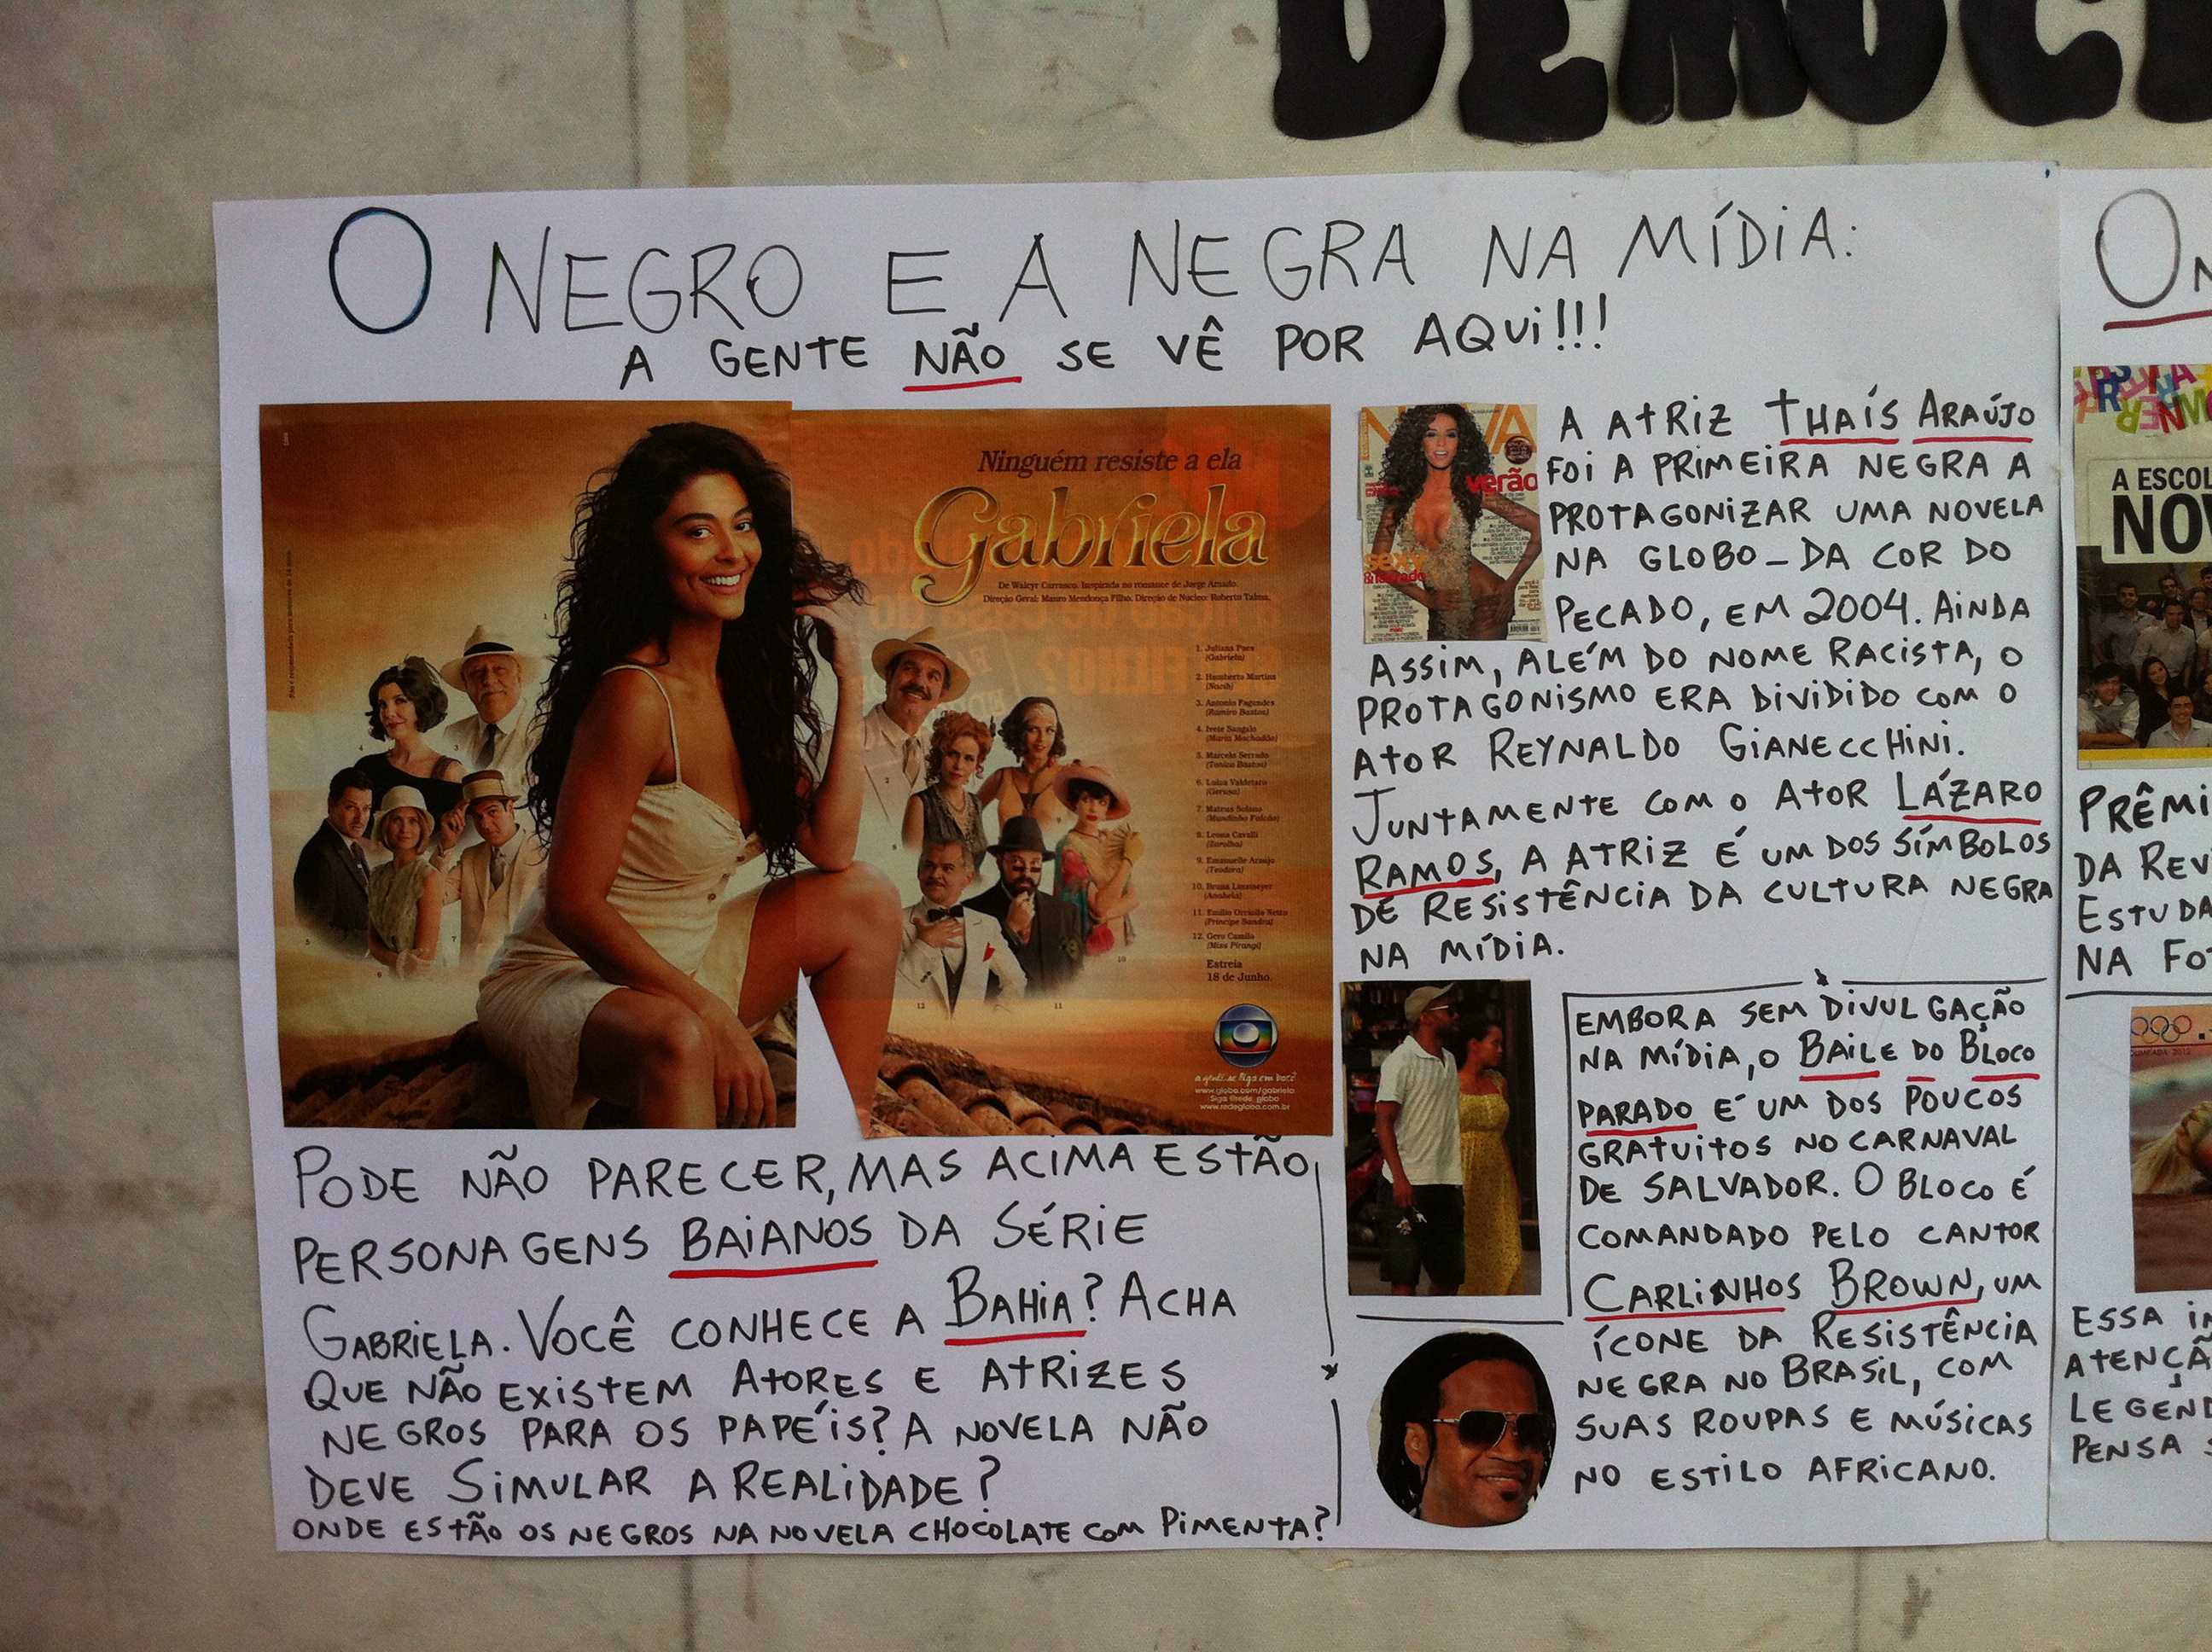 DEMOC
O NEGRO E A NEGRA NA MÍDIA:
A GENTE NÃO SE VÊ POR AQUI!!!
Ninguém resiste a ela
Gabriela
De Walcyr Carrasco. Inspirada no romance de Jorge Amado.
Direção Geral: Mauro Mendonça Filho. Direção de Núcleo: Roberto Talma.
1. Juliana Paes
(Gabriela)
2. Humberto Martins
(Nacib)
3. Antonio Fagundes
(Ramiro Bastos)
4. Ivete Sangalo
(Maria Machadão)
5. Marcelo Serrado
(Tonico Bastos)
6. Luiza Valdetaro
(Gerusa)
7. Mateus Solano
(Mundinho Falcão)
8. Leona Cavalli
(Zarolha)
9. Emanuelle Araújo
(Teodora)
10. Bruna Linzmeyer
(Anabela)
11. Emilio Orciollo Netto
(Príncipe Sandra)
12. Gero Camilo
(Miss Pirangi)
Estreia
18 de Junho.
a gente se liga em você
www.globo.com/gabriela
Siga @rede_globo
www.redeglobo.com.br
PODE NÃO PARECER, MAS ACIMA ESTÃO
PERSONAGENS BAIANOS DA SÉRIE
GABRIELA. VOCÊ CONHECE A BAHIA? ACHA
QUE NÃO EXISTEM ATORES E ATRIZES
NEGROS PARA OS PAPÉIS? A NOVELA NÃO
DEVE SIMULAR A REALIDADE?
ONDE ESTÃO OS NEGROS NA NOVELA CHOCOLATE COM PIMENTA?
NOVA
verão
sexy
A ATRIZ THAÍS ARAÚJO
FOI A PRIMEIRA NEGRA A
PROTAGONIZAR UMA NOVELA
NA GLOBO - DA COR DO
PECADO, EM 2004. AINDA
ASSIM, ALÉM DO NOME RACISTA, O
PROTAGONISMO ERA DIVIDIDO COM O
ATOR REYNALDO GIANECCHINI.
JUNTAMENTE COM O ATOR LÁZARO
RAMOS, A ATRIZ É UM DOS SÍMBOLOS
DE RESISTÊNCIA DA CULTURA NEGRA
NA MÍDIA.
EMBORA SEM DIVULGAÇÃO
NA MÍDIA, O BAILE DO BLOCO
PARADO É UM DOS POUCOS
GRATUITOS NO CARNAVAL
DE SALVADOR. O BLOCO É
COMANDADO PELO CANTOR
CARLINHOS BROWN, UM
ÍCONE DA RESISTÊNCIA
NEGRA NO BRASIL, COM
SUAS ROUPAS E MÚSICAS
NO ESTILO AFRICANO.
O N
A ESCOL
NOV
PRÊMI
DA REV
ESTUDA
NA FOT
OLIMPÍADA 2012
ESSA IM
ATENÇÃ
LEGEND
PENSA S